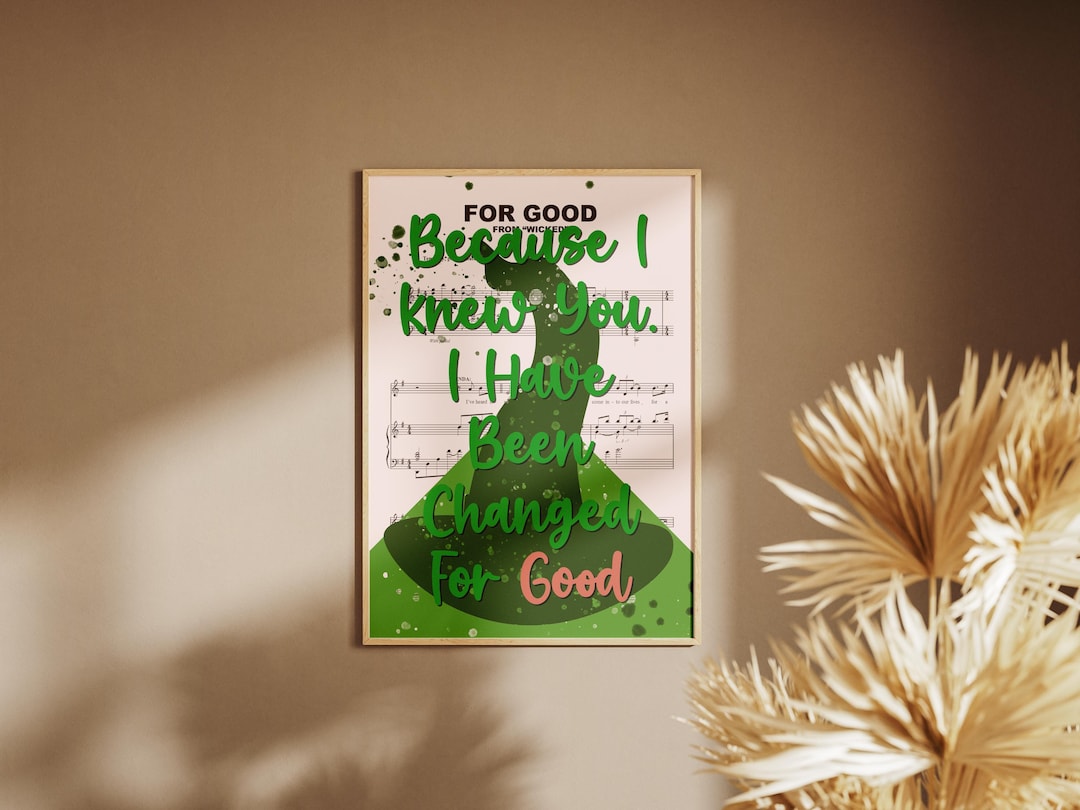 FOR GOOD
FROM "WICKED"
Because I
Knew You.
I Have
Been
Changed
For Good
I've heard
come in - to our lives for a